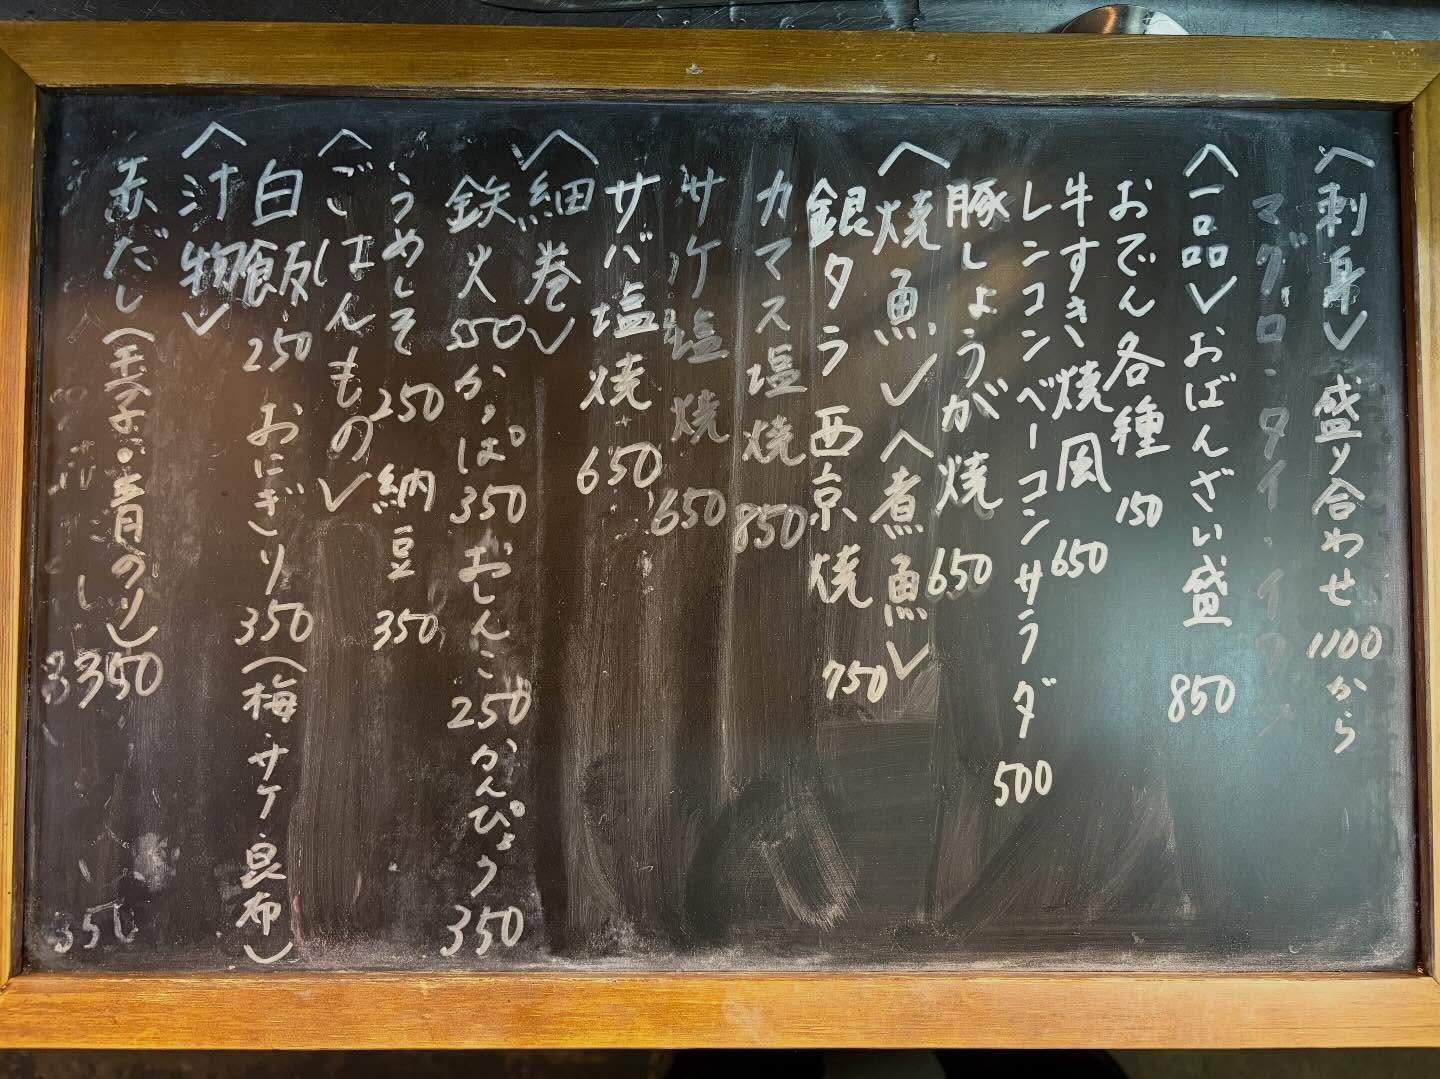 〈刺身〉盛り合わせ 1100から
マグロ・タイ・イワシ
〈一品〉おばんざい盛 850
おでん各種 150
牛すき焼風 650
レンコンベーコンサラダ 500
豚しょうが焼 650
〈焼魚〉〈煮魚〉
銀タラ西京焼 750
カマス塩焼 850
サケ塩焼 650
サバ塩焼 650
〈細巻〉
鉄火 550 かっぱ 350 おしんこ 250 かんぴょう 350
うめしそ 250 納豆 350
〈ごはんもの〉
白飯 250 おにぎり 350 (梅・サケ・昆布)
〈汁物〉
赤だし(玉子・青のり) 350
350